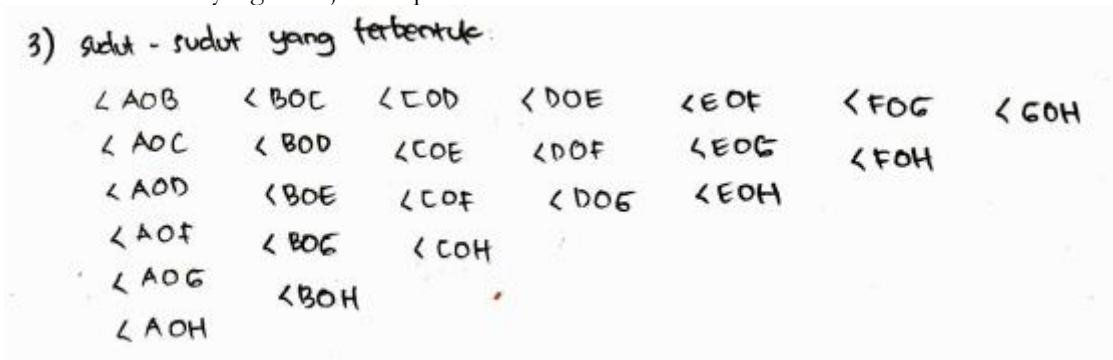 3) sudut - sudut yang terbentuk.
∠ AOB < BOC < COD < DOE < EOF < FOG < GOH
∠ AOC < BOD < COE < DOF < EOG < FOH
< AOD < BOE < COF < DOG < EOH
< AOF < BOG < COH
∠ AOG < BOH
∠ AOH